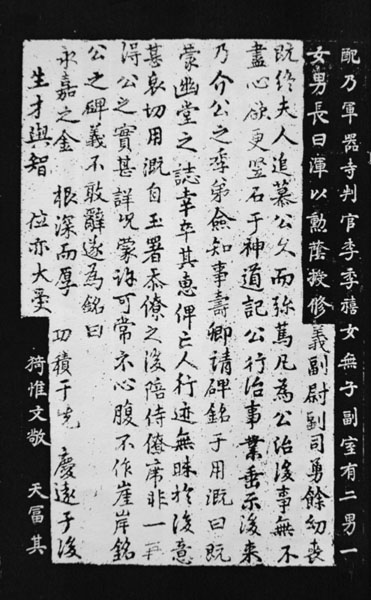 配乃軍器寺判官李季禧女無子副室有二男一
女男長曰渾以勳蔭授修義副尉副司勇餘幼喪
既終夫人追慕公久而弥篤凡為公治後事無不
盡心欲更竪石于神道記公行治事業垂示後来
乃介公之季弟僉知事壽卿請碑銘于用漑曰既
蒙幽堂之誌幸卒其惠俾亡人行迹無昧於後意
甚哀切用漑自玉署忝僚之後陪侍僚席非一再
得公之實甚詳況蒙許可常示心腹不作崖岸銘
公之碑義不敢辭遂為銘曰
永嘉之金 根深而厚 功積于先 慶遠于後
生才與智 位亦大受 猗惟文敬 天冨其